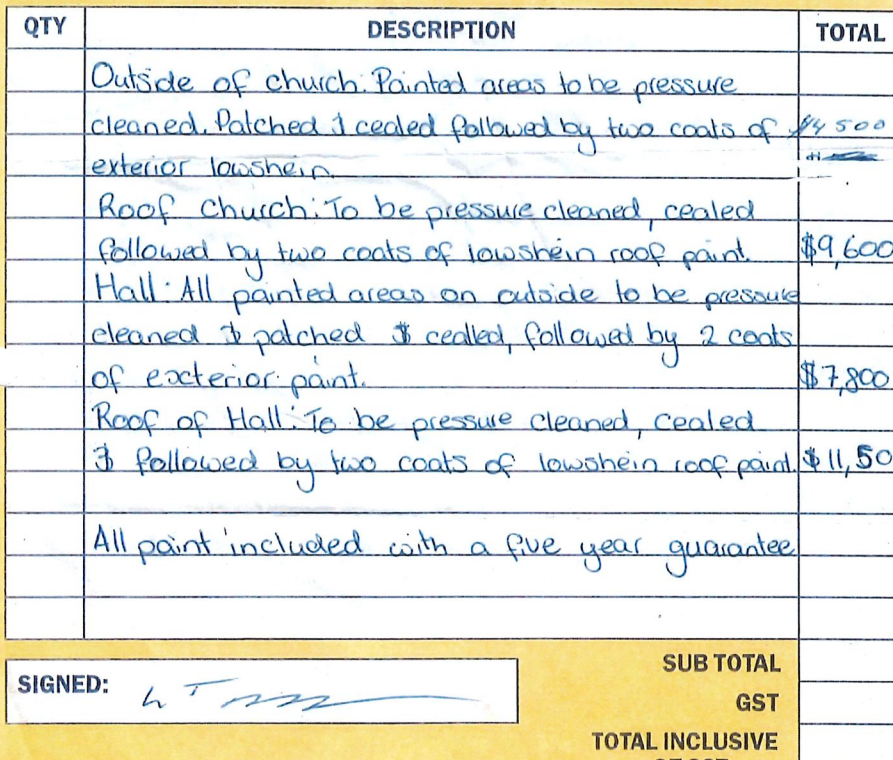 QTY DESCRIPTION TOTAL
Outside of church: Painted areas to be pressure
cleaned. Patched & cealed followed by two coats of $4500
exterior lowshein
Roof Church: To be pressure cleaned, cealed
followed by two coats of lowshein roof paint. $9,600
Hall: All painted areas on outside to be pressure
cleaned & patched & cealled, followed by 2 coats
of exterior paint. $7,800
Roof of Hall: To be pressure cleaned, cealed
& followed by two coats of lowshein roof paint. $11,50
All paint included with a five year guarantee
SUB TOTAL
SIGNED:
GST
TOTAL INCLUSIVE